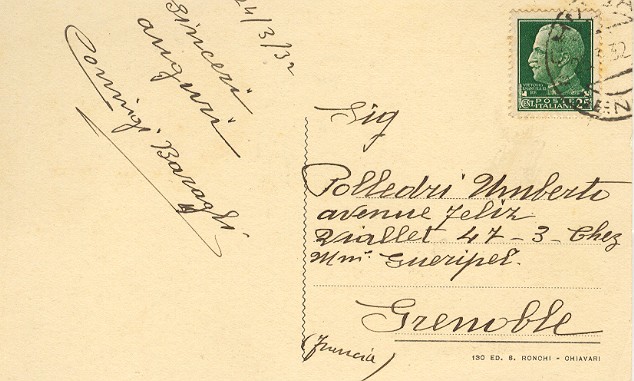 24/3/32
Sinceri
auguri
Baraghi
VITTORIO
EMANUELE III
POSTE
ITALIANE
CENT 25
Sig
Polledri Umberto
avenue Feliz
Viallet 47-3- Chez
Mmi Gueripel.
Grenoble
(Francia)
130 ED. S. RONCHI - CHIAVARI